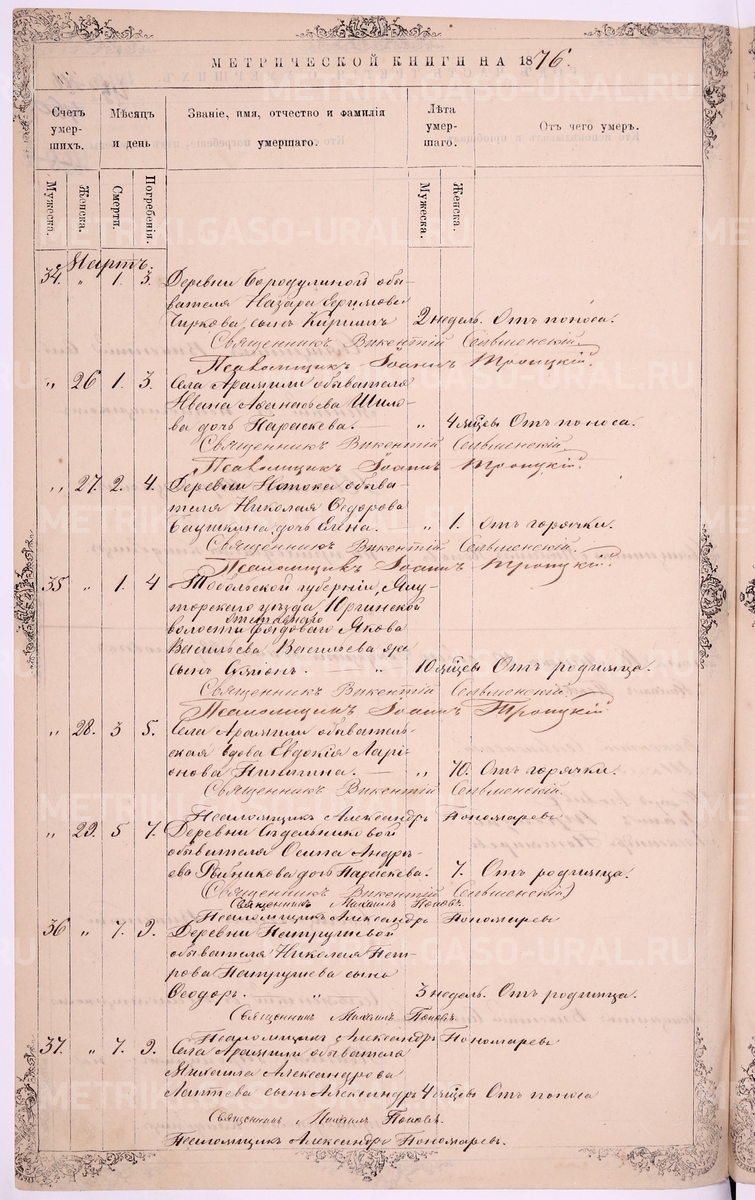 МЕТРИЧЕСКОЙ КНИГИ НА 1876.
Счетъ умершихъ. Мѣсяцъ и день Званіе, имя, отчество и фамилія умершаго. Лѣта умершаго. Отъ чего умеръ.
Мужеска. Женска. Смерти. Погребенія. Мужеска. Женска.
Мартъ.
34. " 1. 3. Деревни Бородулиной обы-
вателя Назара
Чиркова сынъ Кириллъ 2 недѣль. Отъ поноса.
Священникъ Викентій
Псаломщикъ Іоаннъ Троицкій.
" 26 1. 3. Села Арамили обывателя
Ивана Аѳанасьева Шило-
ва дочь Параскева. — " 4 мѣсяцы Отъ поноса.
Священникъ Викентій
Псаломщикъ Іоаннъ Троицкій.
" 27. 2. 4. Деревни Истока обыва-
теля Николая Ѳедорова
дочь Елена. — " 1. Отъ горячки.
Священникъ Викентій
Псаломщикъ Іоаннъ Троицкій.
35 " 1. 4 Тобольской губерніи, Ялу-
торскаго уѣзда, Юргинской
отставнаго
волости рядоваго Якова
Васильева Васильева
сынъ — " 10 мѣсяцы Отъ родимца.
Священникъ Викентій
Псаломщикъ Іоаннъ Троицкій
" 28. 3 5. Села Арамили обыватель-
ская вдова Евдокія Ларі-
онова — " 70. Отъ горячки.
Священникъ Викентій
Псаломщикъ Александръ Пономаревъ
" 29. 5 7. Деревни Сѣдельниковой
обывателя Осипа Андрѣ-
ева Рыбникова дочь Параскева. 7. Отъ родимца.
Священникъ Викентій
Священникъ Михаилъ Поповъ.
Псаломщикъ Александръ Пономаревъ
36 " 7. 9. Деревни Патрушевой
обывателя Николая Пет-
рова Патрушева сынъ
Ѳеодоръ. " 3 недѣль. Отъ родимца.
Священникъ Михаилъ Поповъ.
Псаломщикъ Александръ Пономаревъ
37. " 7. 9. Села Арамили обывателя
Михаила Александрова
Лаптева сынъ Александръ 4 мѣсяцы Отъ поноса
Священникъ Михаилъ Поповъ.
Псаломщикъ Александръ Пономаревъ.
METRIKI.GASO-URAL.RU